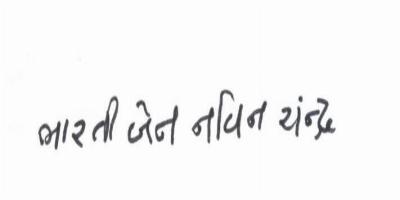 ભારતી જેન નવિન ચંન્દ્ર